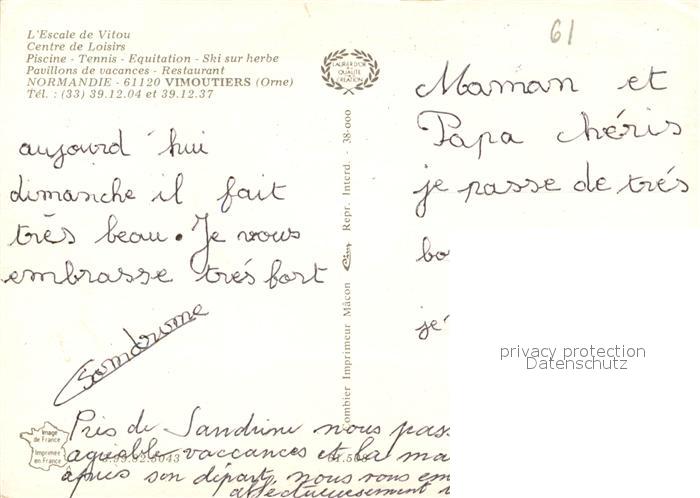 L'Escale de Vitou
Centre de Loisirs
Piscine - Tennis - Equitation - Ski sur herbe
Pavillons de vacances - Restaurant
NORMANDIE - 61120 VIMOUTIERS (Orne)
Tél. : (33) 39.12.04 et 39.12.37
aujourd'hui
dimanche il fait
très beau. Je vous
embrasse trés fort
Sandrine
LAURIER D'OR
DE
QUALITÉ
CRÉATION
Combier Imprimeur Mâcon Cim Repr. Interd. - 38-000
61
Maman et
Papa chéris
je passe de trés
bo
je
privacy protection
Datenschutz
Près de Sandrine nous pas
agréables vaccances et la ma
après son départ, nous vous em
affectueusement
Image
de France
Imprimée
en France